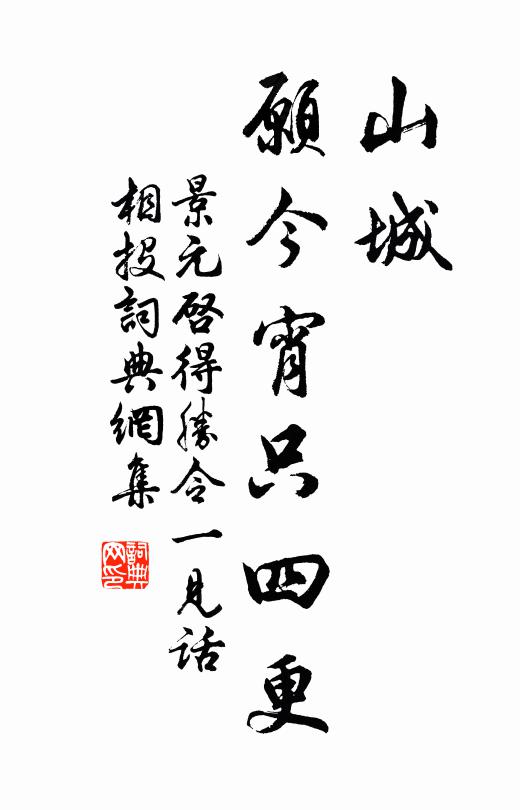 山城
願今宵只四更
景元啓得勝令一見話
相投詞典網集
詞典网印